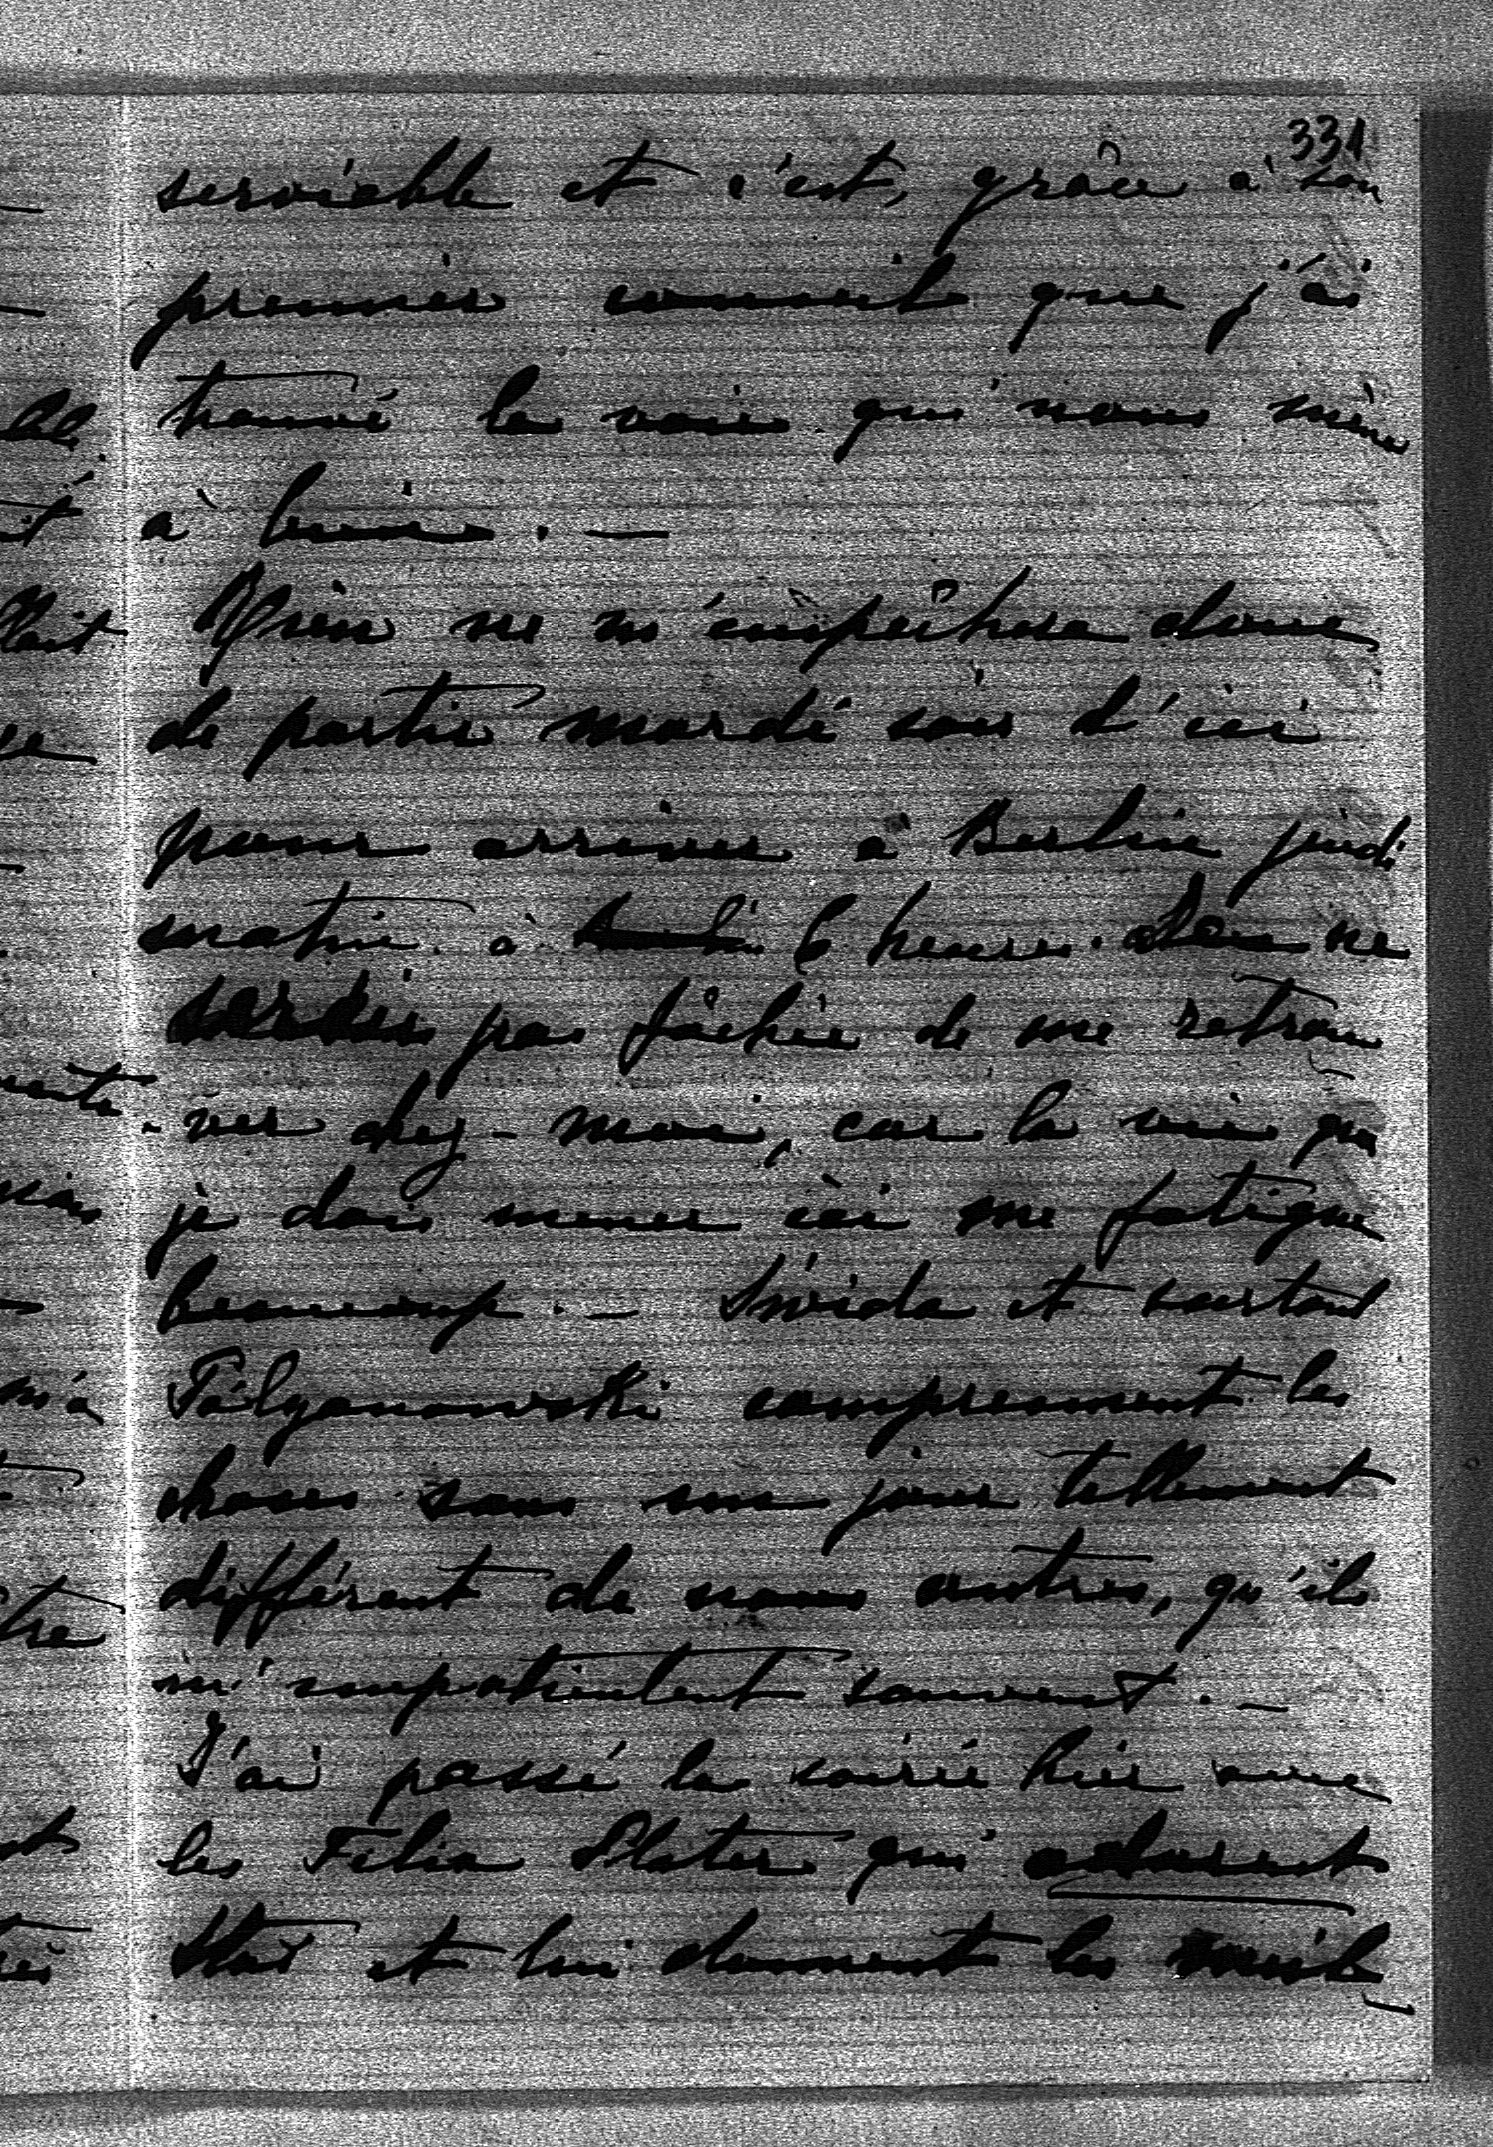 331
serviable et c'est, grâce à son
premier conseil que j'ai
trouvé la voie qui nous mène
à bien. —
Rien ne m'empêchera donc
de partir mardi soir d'ici
pour arriver à Berlin jeudi
matin à 6 heures. ne
pas fâchée de me retrou
-ver chez-moi, car la vie que
je dois mener ici me fatigue
beaucoup. — Świda et surtout
comprennent les
choses sous un jour tellement
différent de nous autres, qu'ils
m'impatientent souvent. —
J'ai passé la soirée hier avec
les Félix Plater qui adorent
Staś et lui donnent les meil-